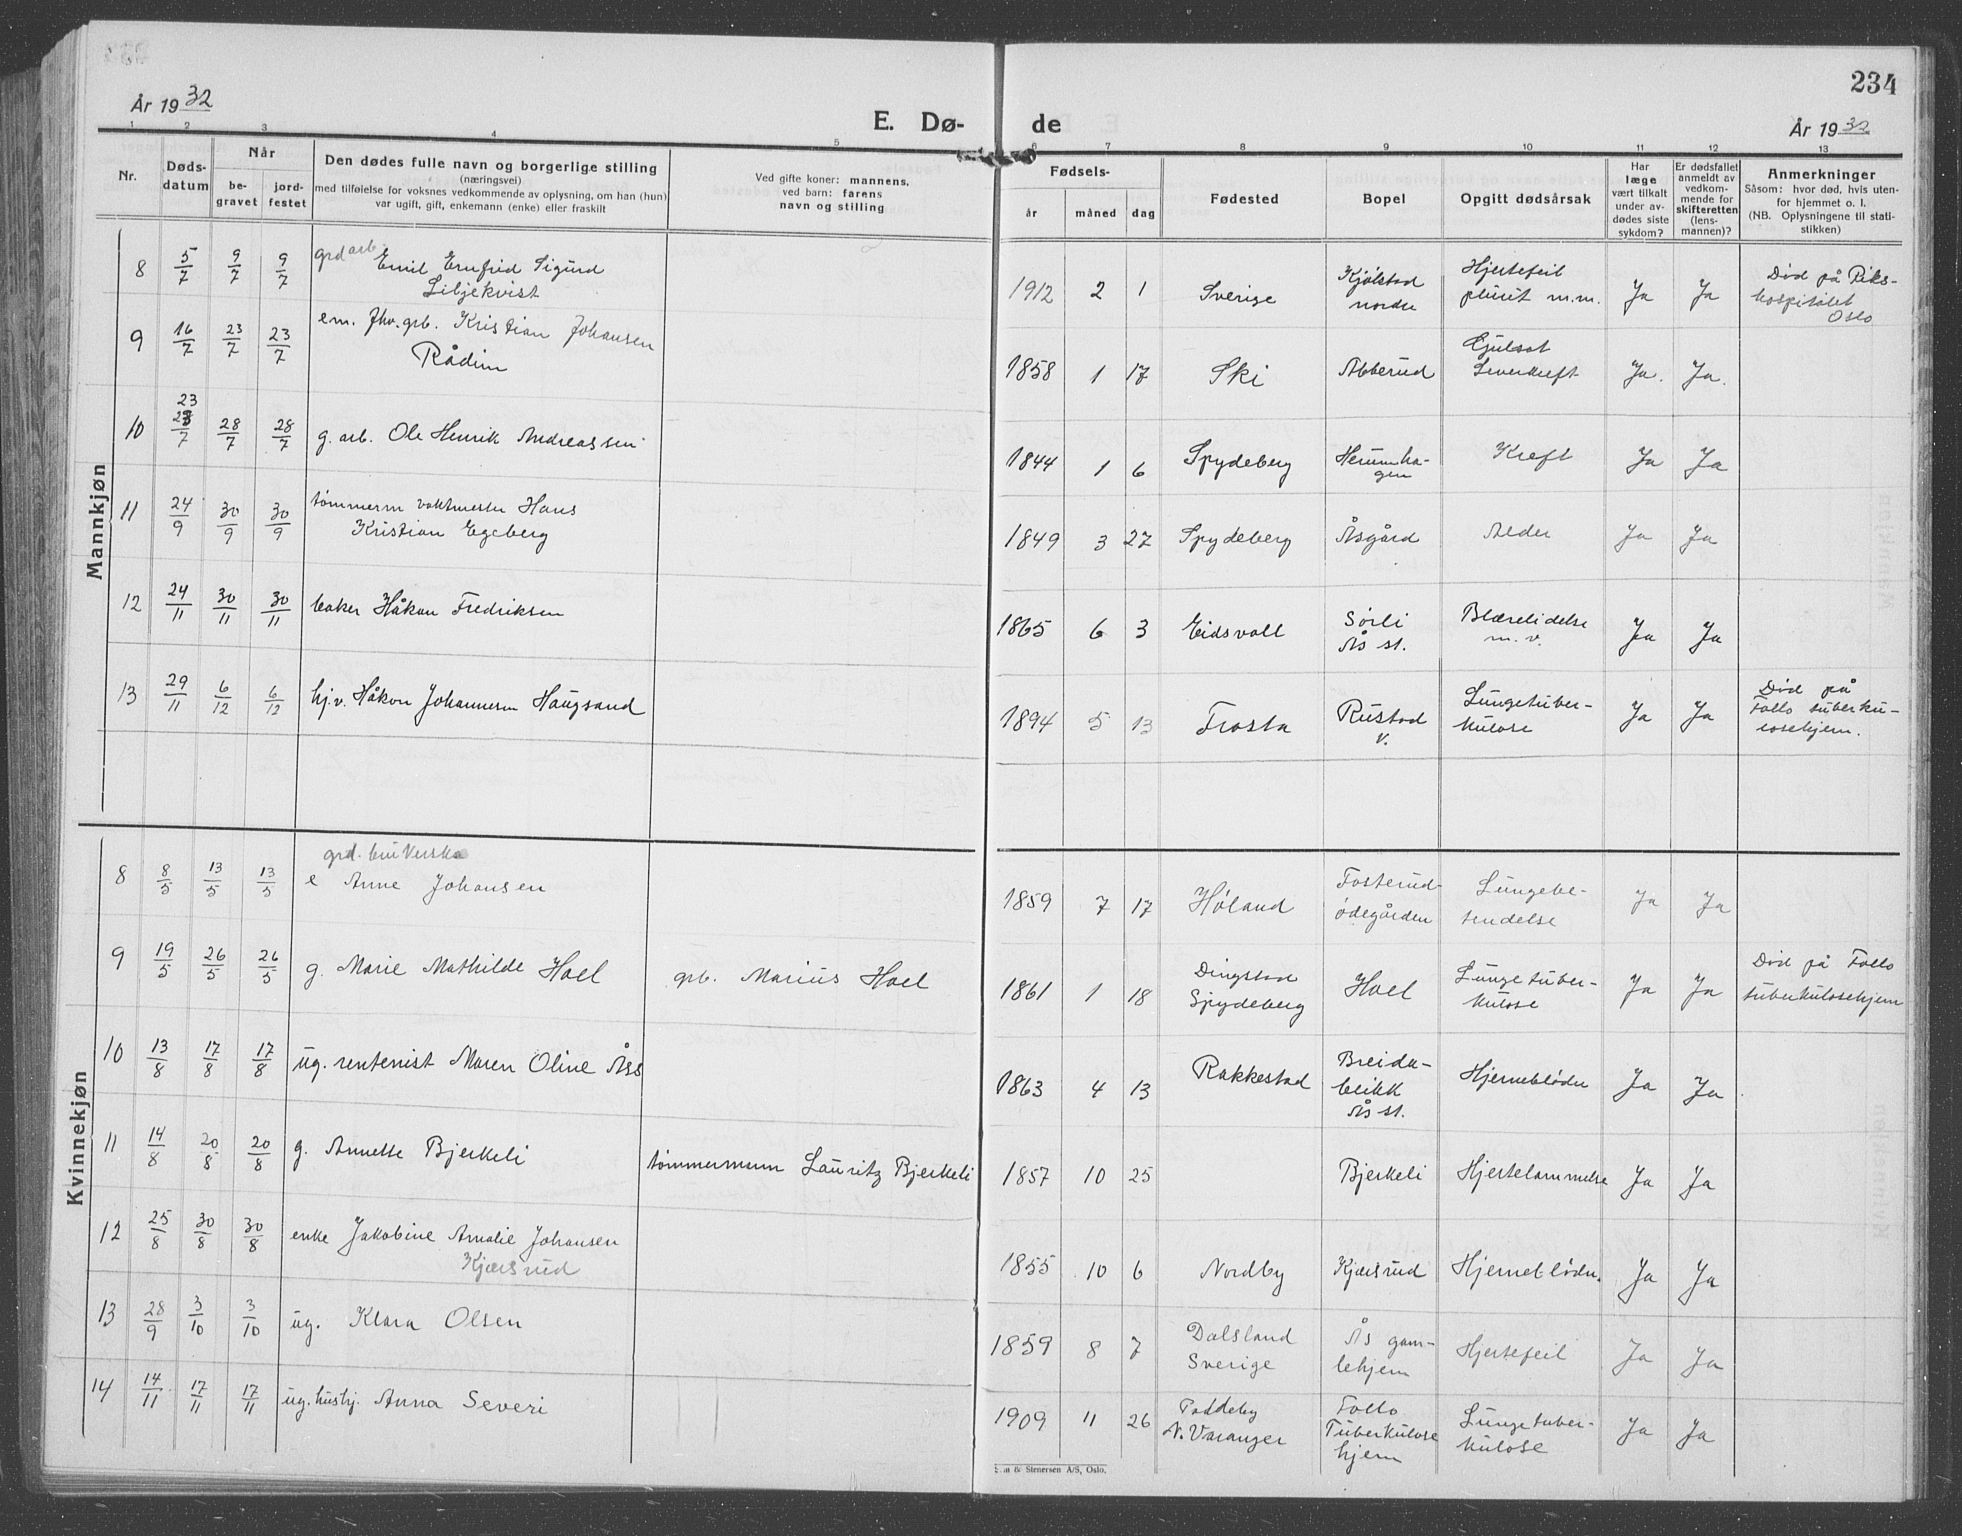 234
År 1932
E. Dø- de
År 1932
1 2 3 4 5 6 7 8 9 10 11 12 13
Nr.
Døds-
datum
Når
be-
gravet
jord-
festet
Den dødes fulle navn og borgerlige stilling
(næringsvei)
med tilføielse for voksnes vedkommende av oplysning, om han (hun)
var ugift, gift, enkemann (enke) eller fraskilt
Ved gifte koner: mannens,
ved barn: farens
navn og stilling
Fødsels-
år måned dag
Fødested
Bopel
Opgitt dødsårsak
Har
læge
vært tilkalt
under av-
dødes siste
sykdom?
Er dødsfallet
anmeldt av
vedkom-
mende for
skifteretten
(lens-
mannen)?
Anmerkninger
Såsom: hvor død, hvis uten-
for hjemmet o. l.
(NB. Oplysningene til stati-
stikken)
Mannkjøn
8 5/7 9/7 9/7 grd arb. Emil Ernfrid Sigurd
Liljekvist
1912 2 1 Sverige Kjølstad
nordre
Hjertefeil
plurit m.m. Ja Ja Død på Riks-
hospitalet
Oslo
9 16/7 23/7 23/7 em. fhv. grb. Kristian Johansen
Rådim
1858 1 17 Ski Abberud Gulsot
Leverkreft Ja. Ja.
10 23
23/7 28/7 28/7 g. arb. Ole Henrik Andreassen
1844 1 6 Spydeberg Herumha-
gen Kreft Ja Ja
11 24/9 30/9 30/9 tømmerm vaktmester Hans
Kristian Egeberg
1849 3 27 Spydeberg Åsgård Alder Ja Ja
12 24/11 30/11 30/11 baker Håkon Fredriksen
1865 6 3 Eidsvoll Sørli
Ås st. Blærelidelse
m.v. Ja Ja
13 29/11 6/12 6/12 hj.v. Håkon Johannesen Haugsand
1894 5 13 Frosta Rustad
v. Lungetuber-
kulose Ja Ja Død på
Follo tuberku-
losehjem.
Kvinnekjøn
8 8/5 13/5 13/5 grd. brukerske
e Anne Johansen
1859 7 17 Høland Fosterud-
ødegården Lungebe-
tendelse Ja Ja
9 19/5 26/5 26/5 g. Marie Mathilde Hoel grb. Marius Hoel
1861 1 18 Dingstad
Spydeberg Hoel Lungetuber-
kulose Ja Ja Død på Follo
tuberkulosehjem
10 13/8 17/8 17/8 ug. rentenist Maren Oline Ås
1863 4 13 Rakkestad Breida-
blikk
Ås st. Hjerneblødn Ja Ja
11 14/8 20/8 20/8 g. Annette Bjerkeli tømmermann Lauritz Bjerkeli
1857 10 25 Bjerkeli Hjertelammelse Ja Ja
12 25/8 30/8 30/8 enke Jakobine Amalie Johansen
Kjærsrud
1855 10 6 Nordby Kjærsrud Hjerneblødn. Ja Ja
13 28/9 3/10 3/10 ug. Klara Olsen
1859 8 7 Dalsland
Sverige Ås gam-
lehjem Hjertefeil Ja Ja
14 14/11 17/11 17/11 ug. hushj. Anna Severi
1909 11 26 Paddeby
N. Varanger Follo
Tuberkulose
hjem Lungetuber-
kulose Ja Ja
& Stenersen A/S, Oslo.